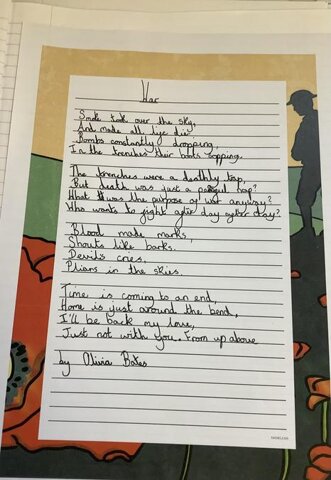 War
Smoke took over the sky,
And made all life die
Bombs constantly dropping,
In the trenches their boots sopping.
The trenches were a deathly trap,
But death was just a tap?
What was the purpose of war anyway?
Who wants to fight day after day?
Blood made marks,
Shouts like barks.
Devil's cries,
Pliars in the skies.
Time is coming to an end,
Home is just around the bend,
I'll be back my love,
Just not with you. From up above
by Olivia Bates